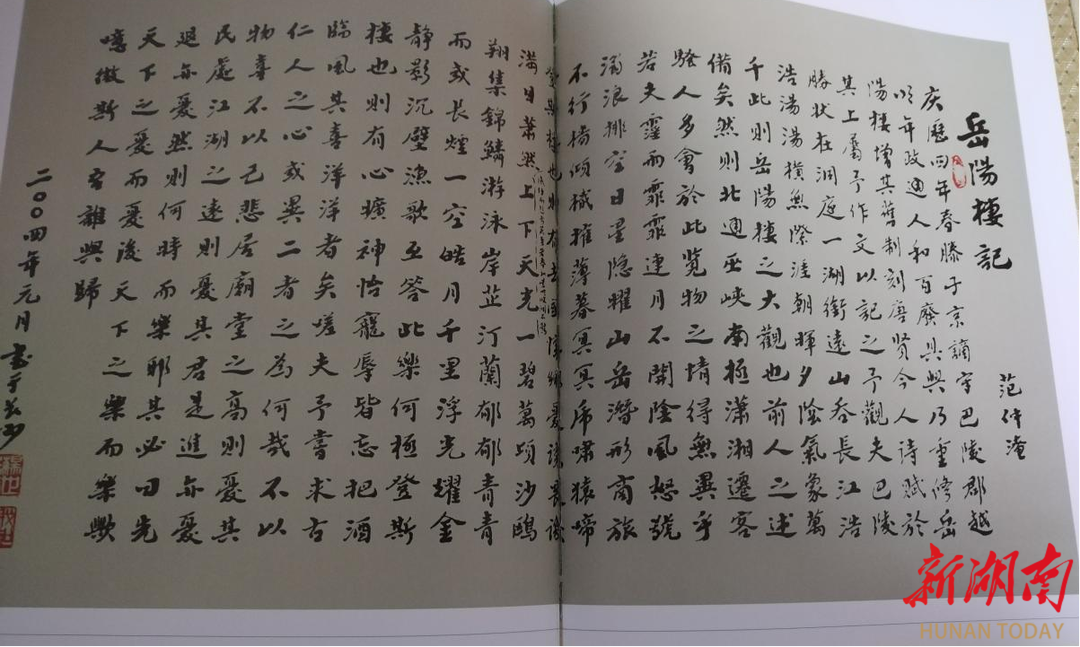 岳陽樓記
范仲淹
庆歷四年春滕子京謫守巴陵郡越
明年政通人和百廢具興乃重修岳
陽樓增其舊制刻唐賢今人詩賦於
其上屬予作文以記之予觀夫巴陵
勝狀在洞庭一湖銜遠山吞長江浩
浩湯湯橫無際涯朝暉夕陰氣象萬
千此則岳陽樓之大觀也前人之述
備矣然則北通巫峽南極瀟湘遷客
騷人多會於此覽物之情得無異乎
若夫霪雨霏霏連月不開陰風怒號
濁浪排空日星隐曜山岳潛形商旅
不行檣傾楫摧薄暮冥冥虎嘯猿啼
登斯樓也則有去國懷鄉憂讒畏譏
滿目蕭然上下天光一碧萬頃沙鷗
翔集錦鱗游泳岸芷汀蘭郁郁青青
而或長煙一空皓月千里浮光耀金
靜影沉璧漁歌互答此樂何極登斯
樓也則有心曠神怡寵辱皆忘把酒
臨風其喜洋洋者矣嗟夫予嘗求古
仁人之心或異二者之為何哉不以
物喜不以己悲居廟堂之高則憂其
民處江湖之遠則憂其君是進亦憂
退亦憂然則何時而樂耶其必曰先
天下之憂而憂後天下之樂而樂歟
噫微斯人吾誰與歸
二〇〇四年元月書于長沙
新湖南
HUNAN TODAY